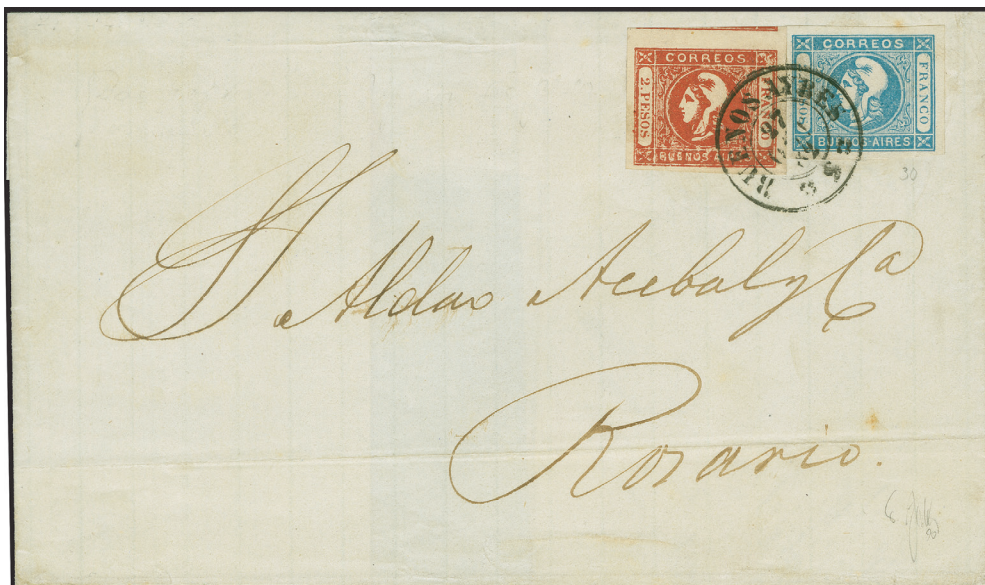 CORREOS
2. PESOS
FRANCO
BUENOS AIRES
CORREOS
FRANCO
BUENOS-AIRES
BUENOS AYRES
27
30
Sr. Aldao Acebal y Ca
Rosario.